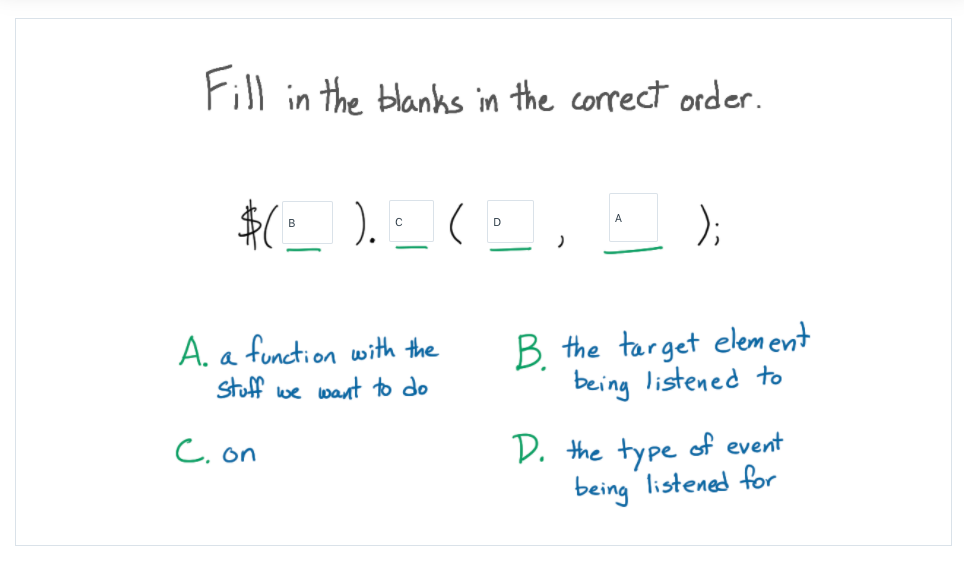 Fill in the blanks in the correct order.
$( B ). C ( D , A );
A. a function with the
stuff we want to do
B. the target element
being listened to
C. on
D. the type of event
being listened for